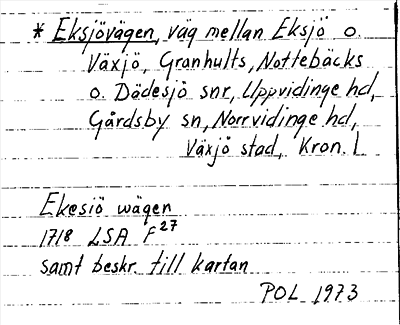 * Eksjövägen, väg mellan Eksjö o.
Växjö, Granhults, Nottebäcks
o. Dädesjö snr, Uppvidinge hd,
Gårdsby sn, Norrvidinge hd,
Växjö stad, Kron. l
Ekesiö wägen
1718 LSA F27
samt beskr. till kartan
POL 1973